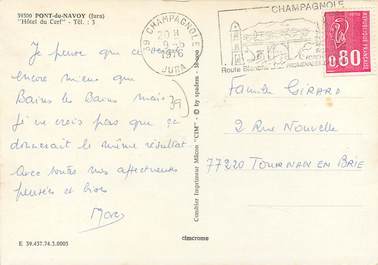 39300 PONT-du-NAVOY (Jura)
"Hôtel du Cerf" - Tél. : 3
Je pense que ce
encore mieux que
Bains les Bains mais
je ne crois pas que ça
donnerait le même résultat
Avec toutes nos affectueuses
pensées et bises
Marc
39
E 39.437.74.3.0003
39 CHAMPAGNOLE
20 H
1976
JURA
CHAMPAGNOLE
Route Blanche
PROMENADES
0,80
Combier Imprimeur Mâcon "CIM"
cimcrome
Famille GIRARD
2 Rue Nouvelle
77220 TOURNAN EN BRIE